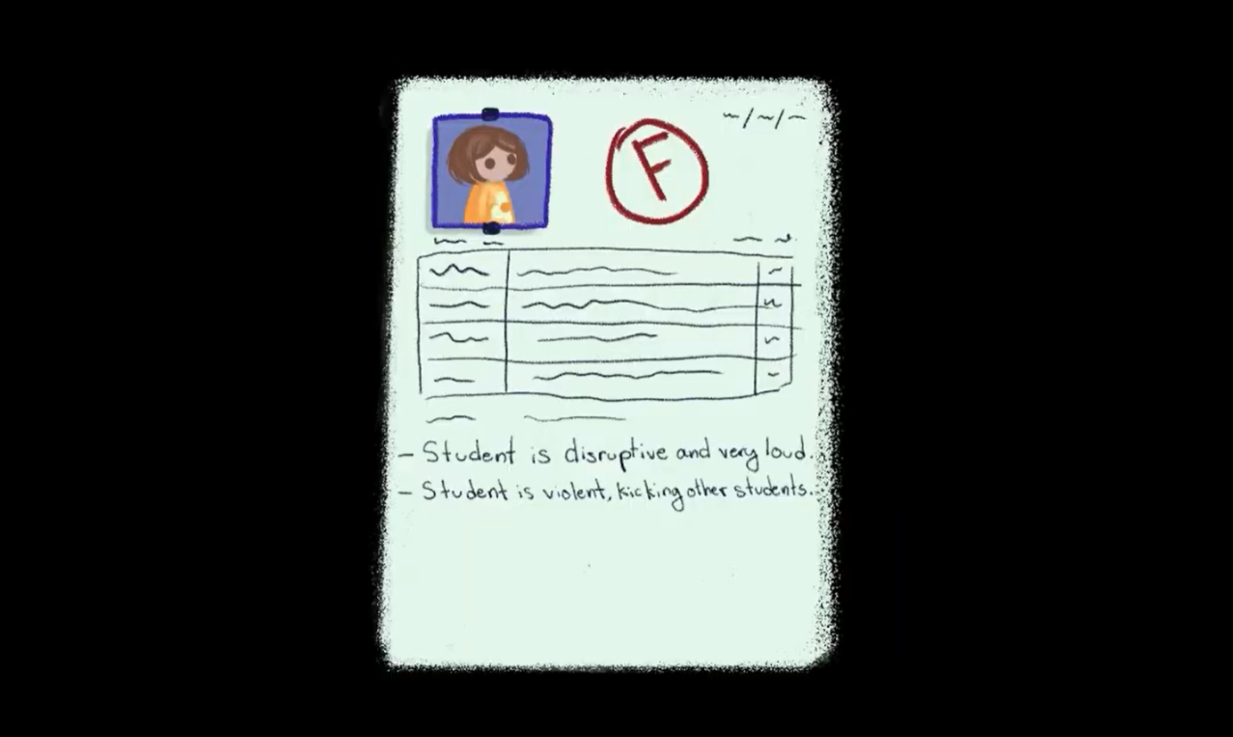 F
- Student is disruptive and very loud.
- Student is violent, kicking other students.